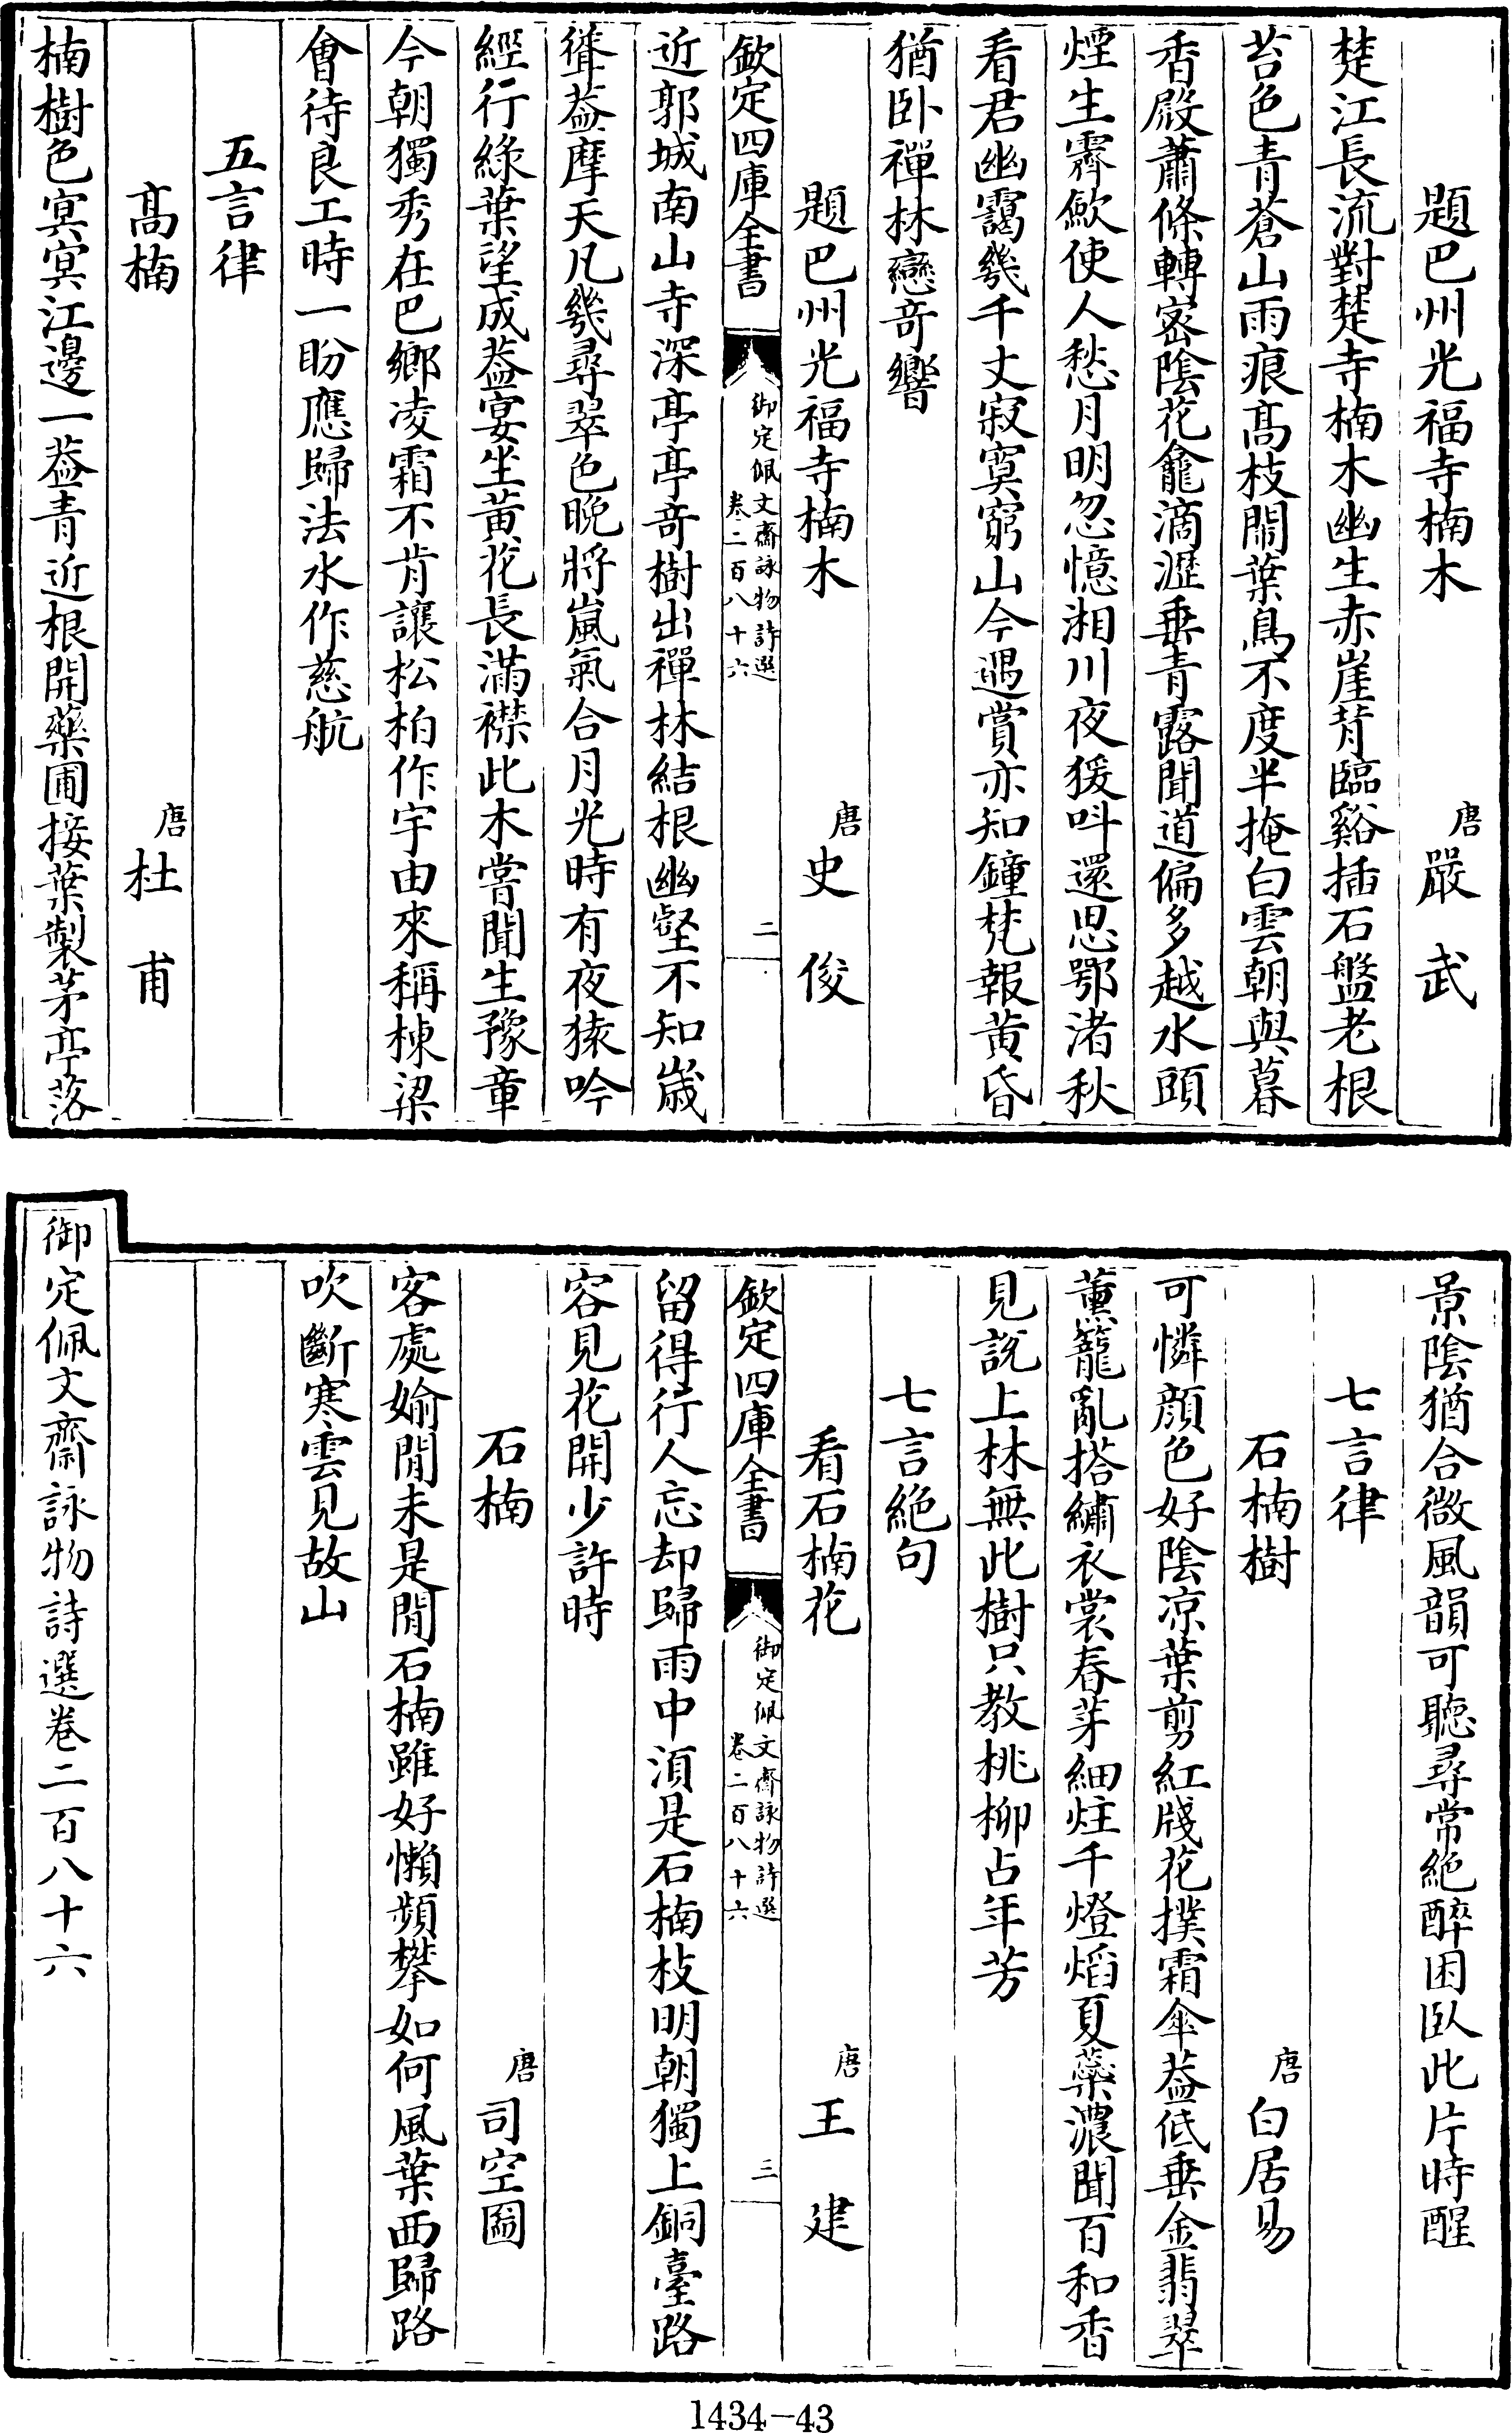 題巴州光福寺楠木 唐 嚴 武
楚江長流對楚寺楠木幽生赤崖背臨谿插石盤老根
苔色青蒼山雨痕高枝閙葉鳥不度半掩白雲朝與暮
香殿蕭條轉密陰花龕滴瀝垂青露聞道偏多越水頭
煙生霽歛使人愁月明忽憶湘川夜猨呌還思鄂渚秋
看君幽靄幾千丈寂寞窮山今遇賞亦知鐘梵報黄昏
猶卧禪林戀奇響
題巴州光福寺楠木 唐 史 俊
欽定四庫全書 御定佩文齋詠物詩選 卷二百八十六 二
近郭城南山寺深亭亭奇樹出禪林結根幽壑不知歲
聳葢摩天凡幾尋翠色晚將嵐氣合月光時有夜猿吟
經行綠葉望成葢宴坐黄花長滿襟此木嘗聞生豫章
今朝獨秀在巴鄉凌霜不肯讓松柏作宇由來稱棟梁
會待良工時一盼應歸法水作慈航
五言律
髙楠 唐 杜 甫
楠樹色冥冥江邊一葢青近根開藥圃接葉製茅亭落
景陰猶合微風韻可聽尋常絶醉困臥此片時醒
七言律
石楠樹 唐 白居易
可憐顔色好陰凉葉剪紅牋花撲霜傘葢低垂金翡翠
薰籠亂搭繡衣裳春芽細炷千燈焰夏蘂濃聞百和香
見說上林無此樹只教桃柳占年芳
七言絶句
看石楠花 唐 王 建
欽定四庫全書 御定佩文齋詠物詩選 卷二百八十六 三
留得行人忘却歸雨中湏是石楠枝明朝獨上銅臺路
容見花開少許時
石楠 唐 司空圖
客處媮閒未是閒石楠雖好懶頻攀如何風葉西歸路
吹斷寒雲見故山
御定佩文齋詠物詩選卷二百八十六
1434-43